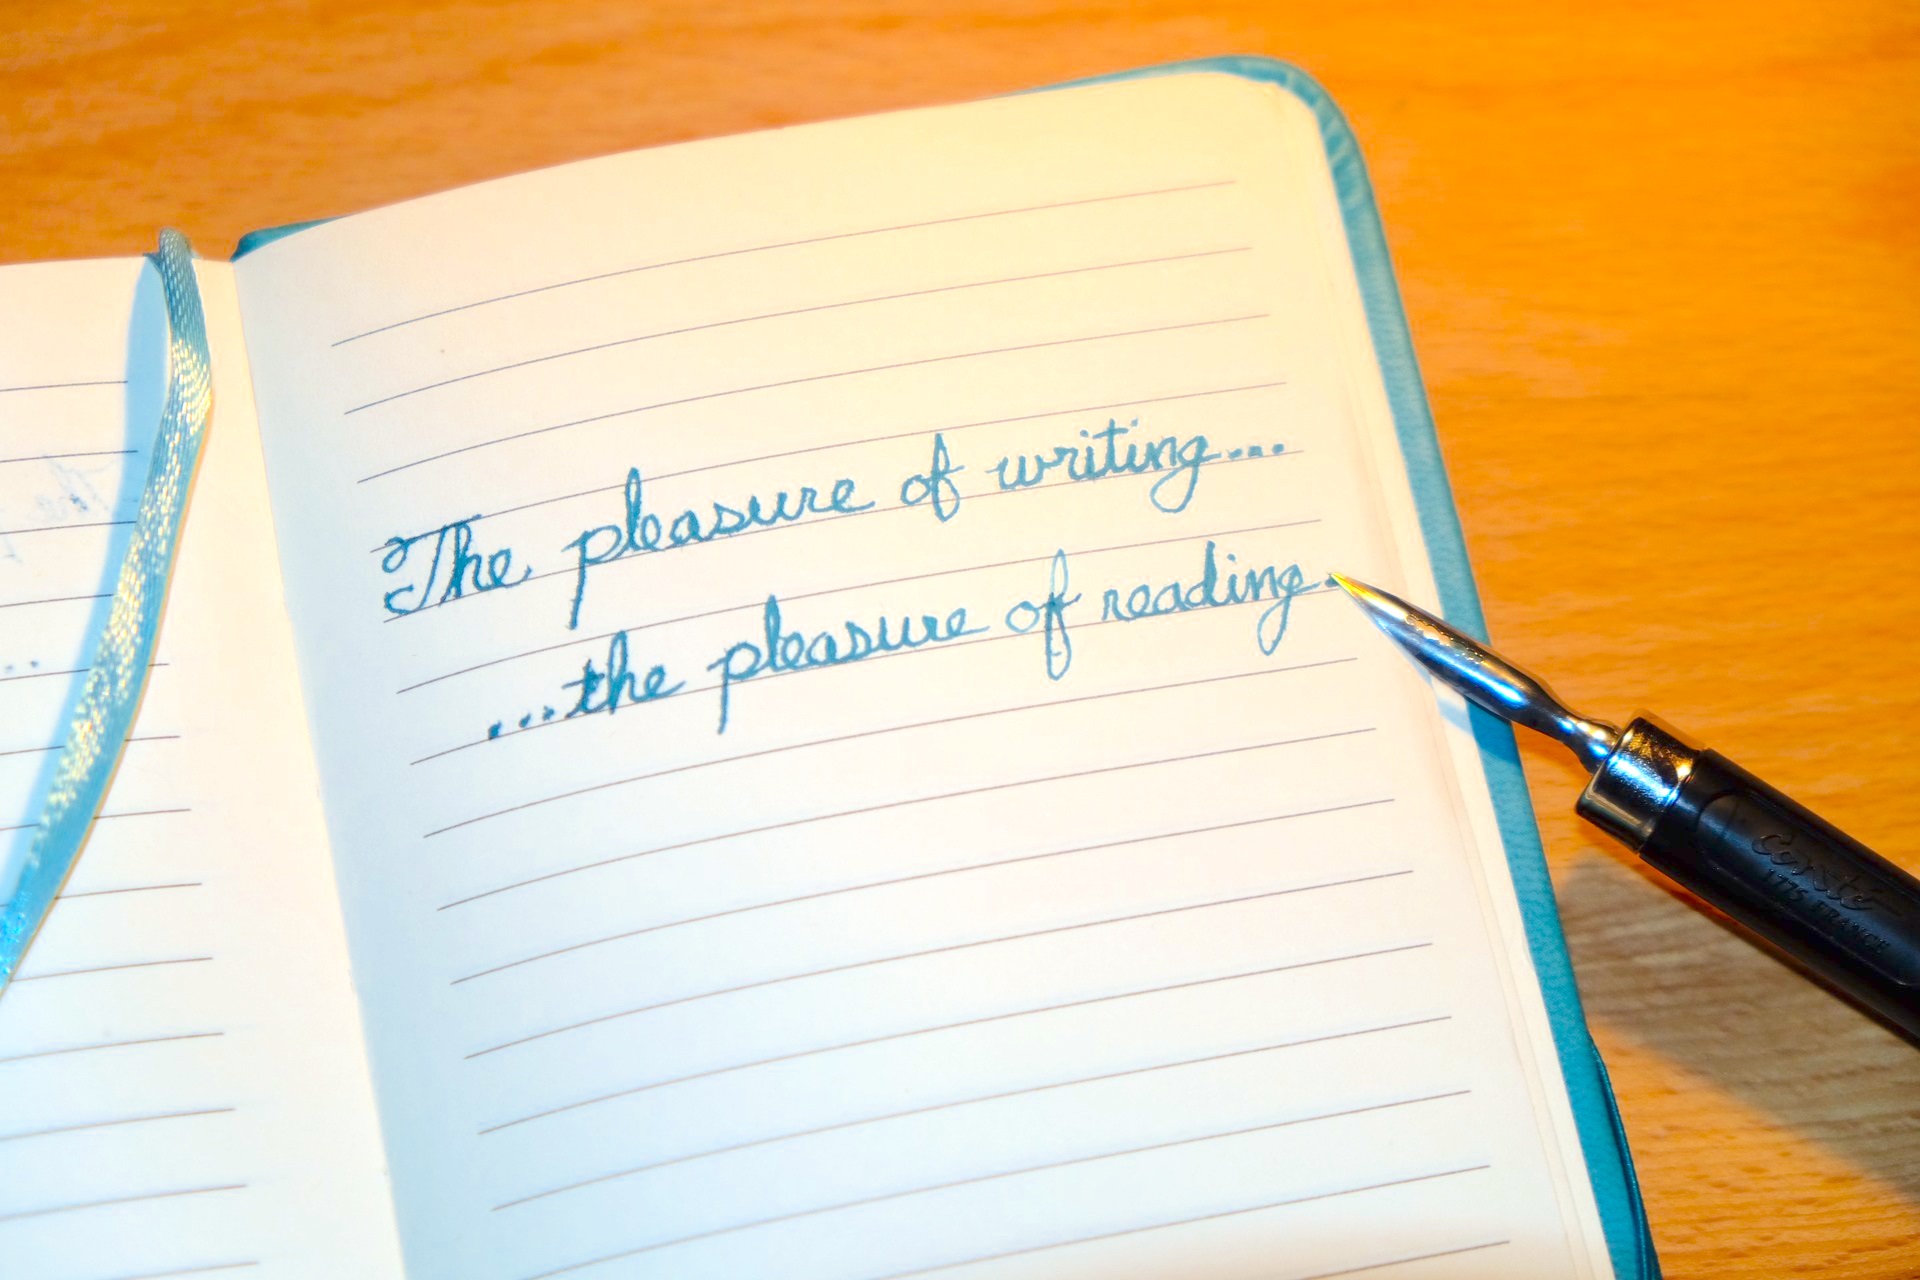 The pleasure of writing...
...the pleasure of reading.
Conté
1775 FRANCE